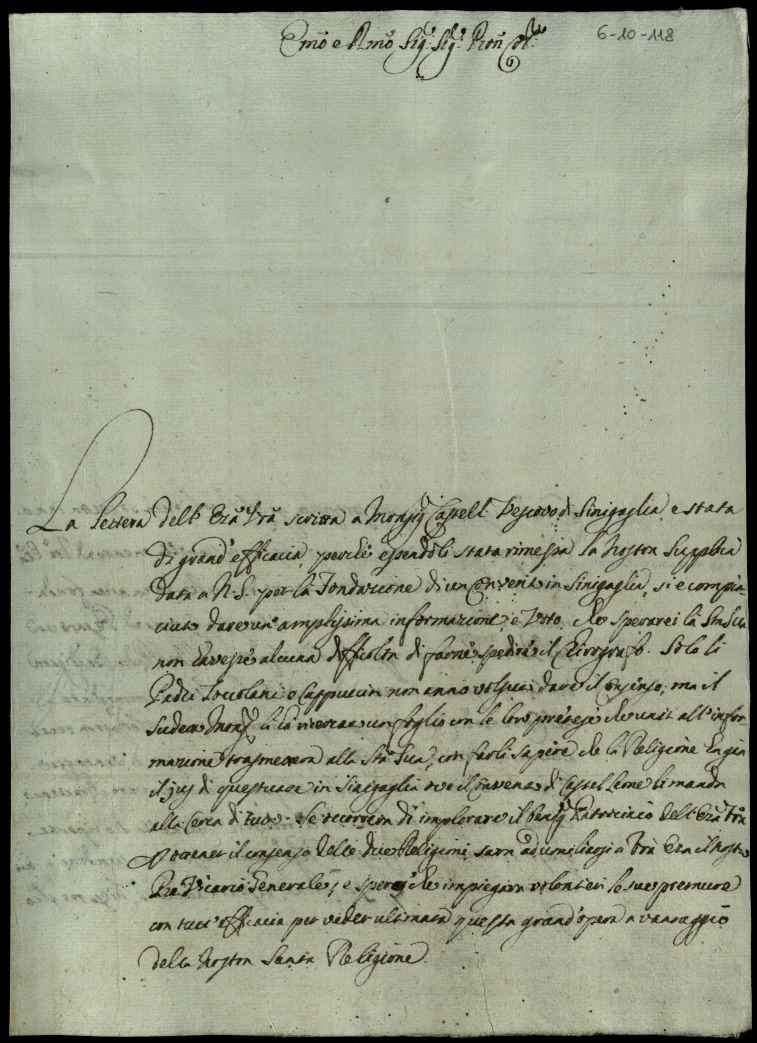 Emo e Rmo Sigr. Sigr. Pron Col.
6-10-118
La lettera dell' Emã Vrã scritta a Monsig. Vescovo di Sinigaglia, e stata
di grand' efficacia, perche essendoli stata rimessa la nostra supplica
data a N. S. per la Fondazione di un Convento in Sinigaglia, si e compia-
ciuto dare un' amplissima informazione, e Voto, che sperarei la
non havesse alcuna difficoltà di farne spedire il Chirografo. Solo li
Padri Zoccolanti, e Cappuccini non anno volsuto dare il consenso, ma il
sudetto Monsig. li la ricercato un foglio con le loro pretese che unito all' infor
mazione trasmetterà alla Stà Sua, con farli sapere che la Religione
il jus di questuare in Sinigaglia ove il Convento di Castel Leone li manda
alla Cerca di tutto. Se occorrerà di implorare il benig. Patrocinio dell' Emã Vrã
ottener il consenso delle due Religioni, sarà ad umiliarsi a Vrã Emã il nostro
Pre Vicario Generale, e spero che impiegara volontieri le sue premure
con tutt' efficacia per veder ultimata questa grand' opera a vantaggio
della nostra Santa Religione.